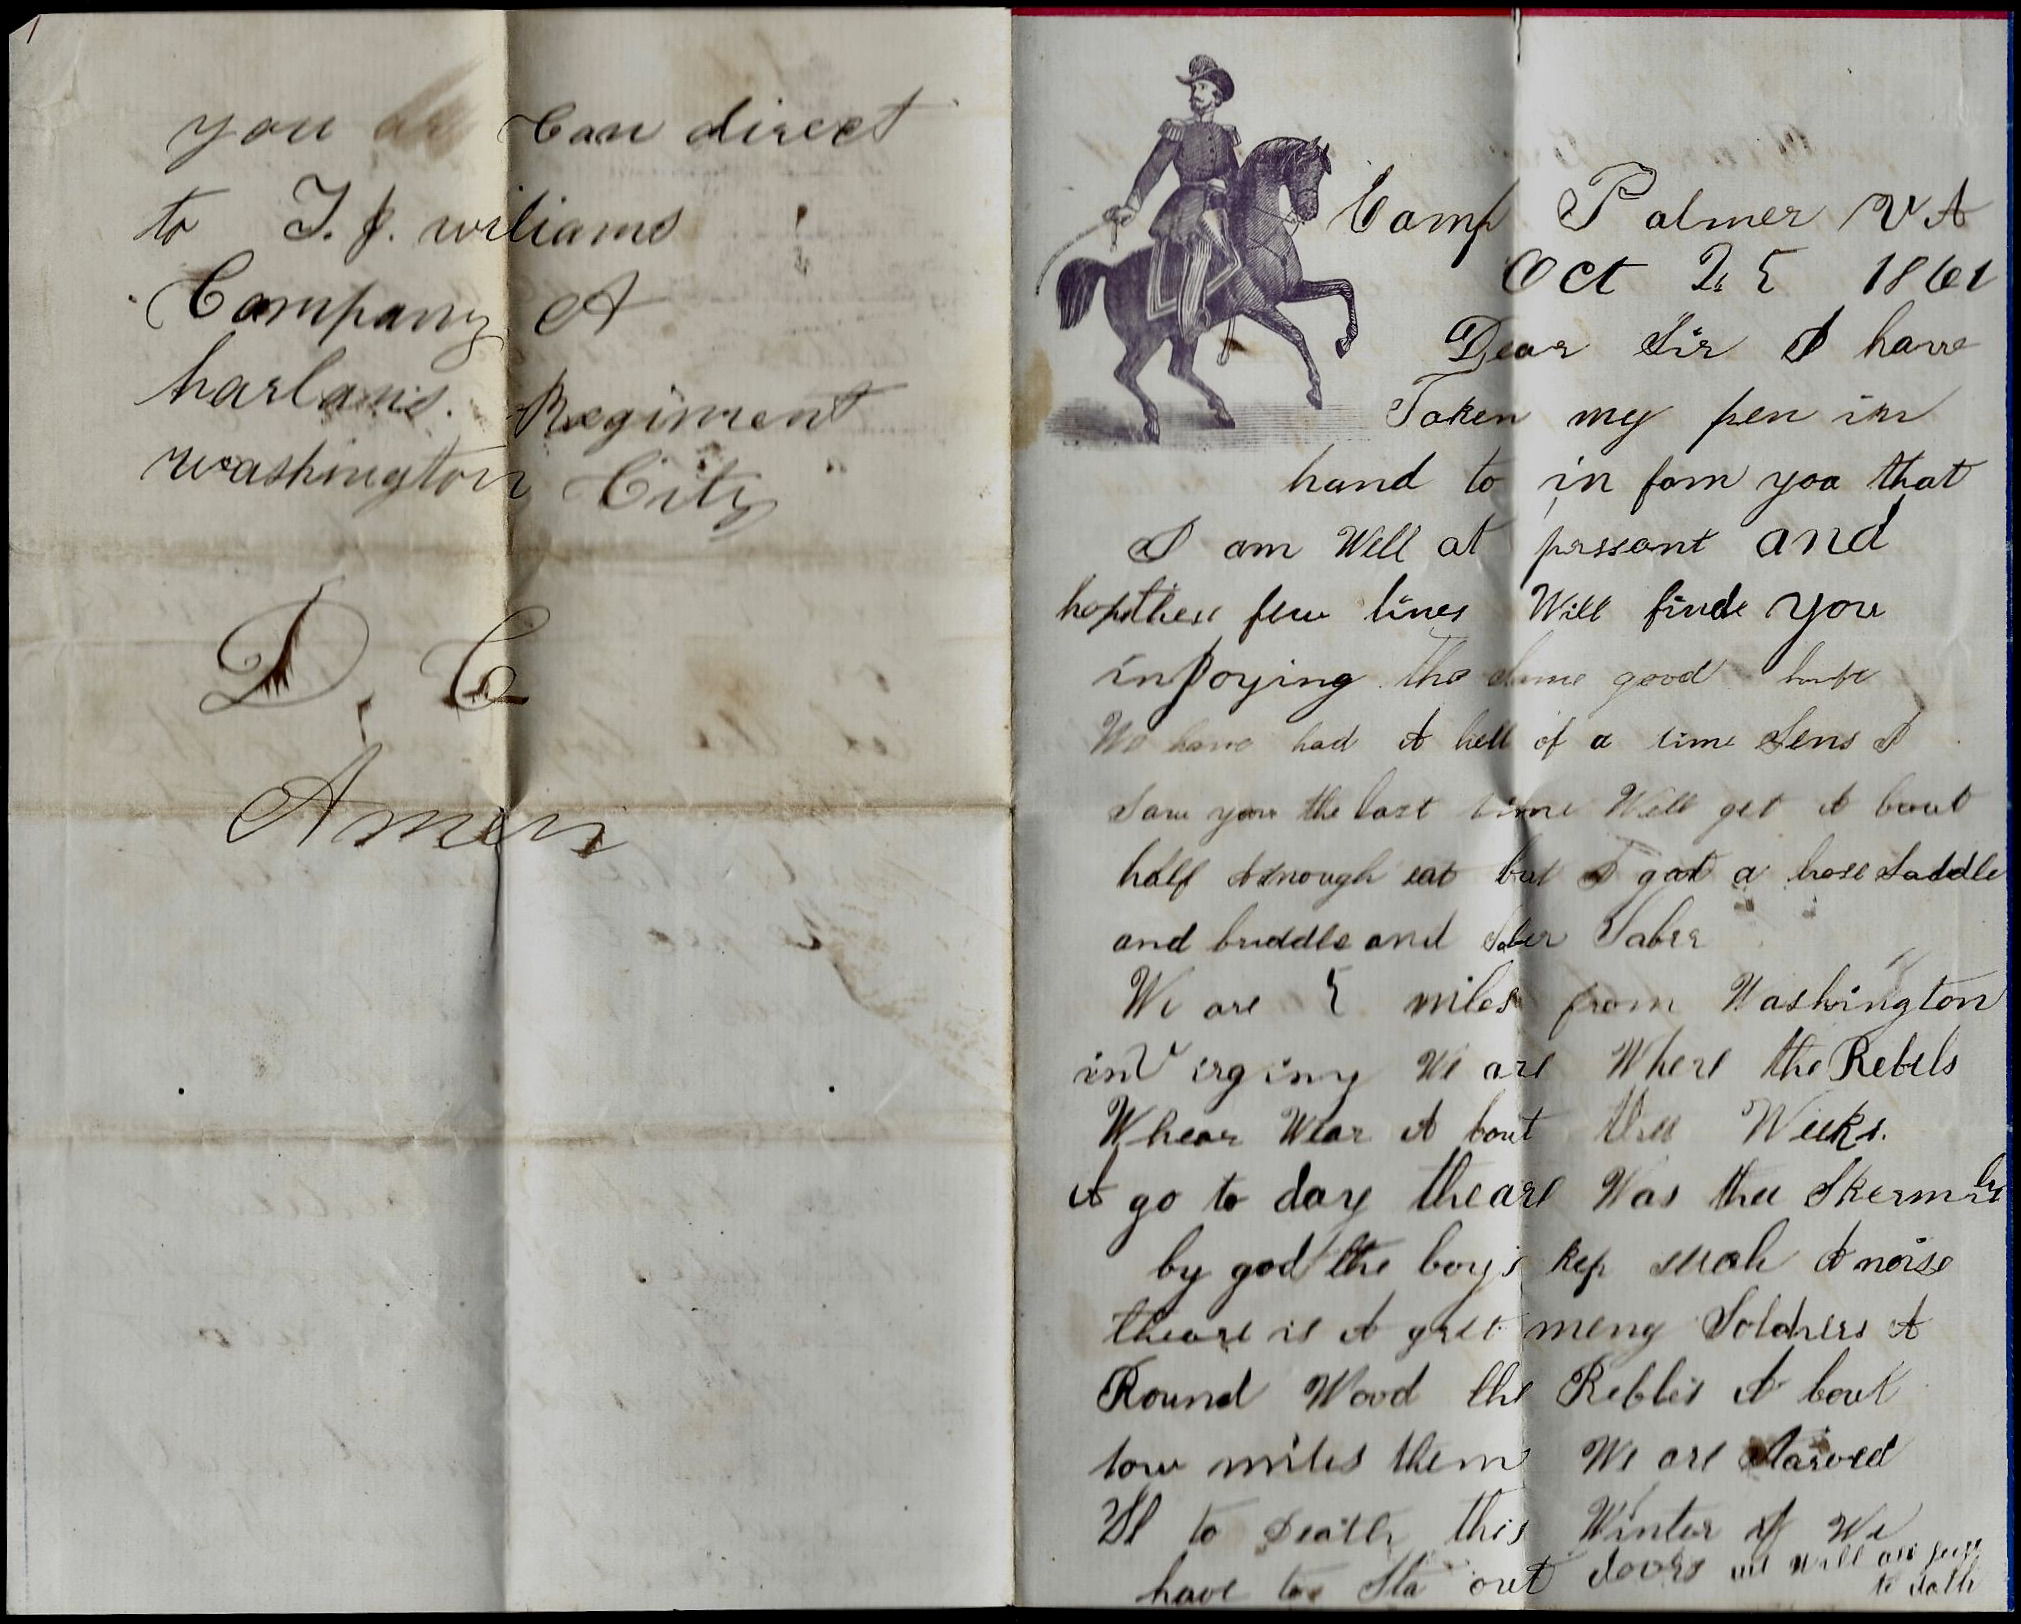 you can direct
to T. J. wiliams
Company A
harlans. Regiment
washington City
D. C
Amen
Camp Palmer VA
Oct 25 1861
Dear Sir I have
Taken my pen in
hand to in fom you that
I am Well at pressant and
hop thes few lines Will finde you
injoying the same good
We have had A hell of a time Sens I
Saw you the last time Well get A bout
half A nough eat but I got a hose Saddle
and briddle and Saber
We are 5 miles from Washington
in Virginy We are Where the Rebels
Whear Wear A bout thee Weeks.
A go to day theare Was thee Skermishs
by god the boys kep such A noise
theare is A gret meny Soldiers A
Round Wood the Rebbles A bout
tow miles them We are starved
to Death this Winter If We
have to Sta out doors we will all
to deth